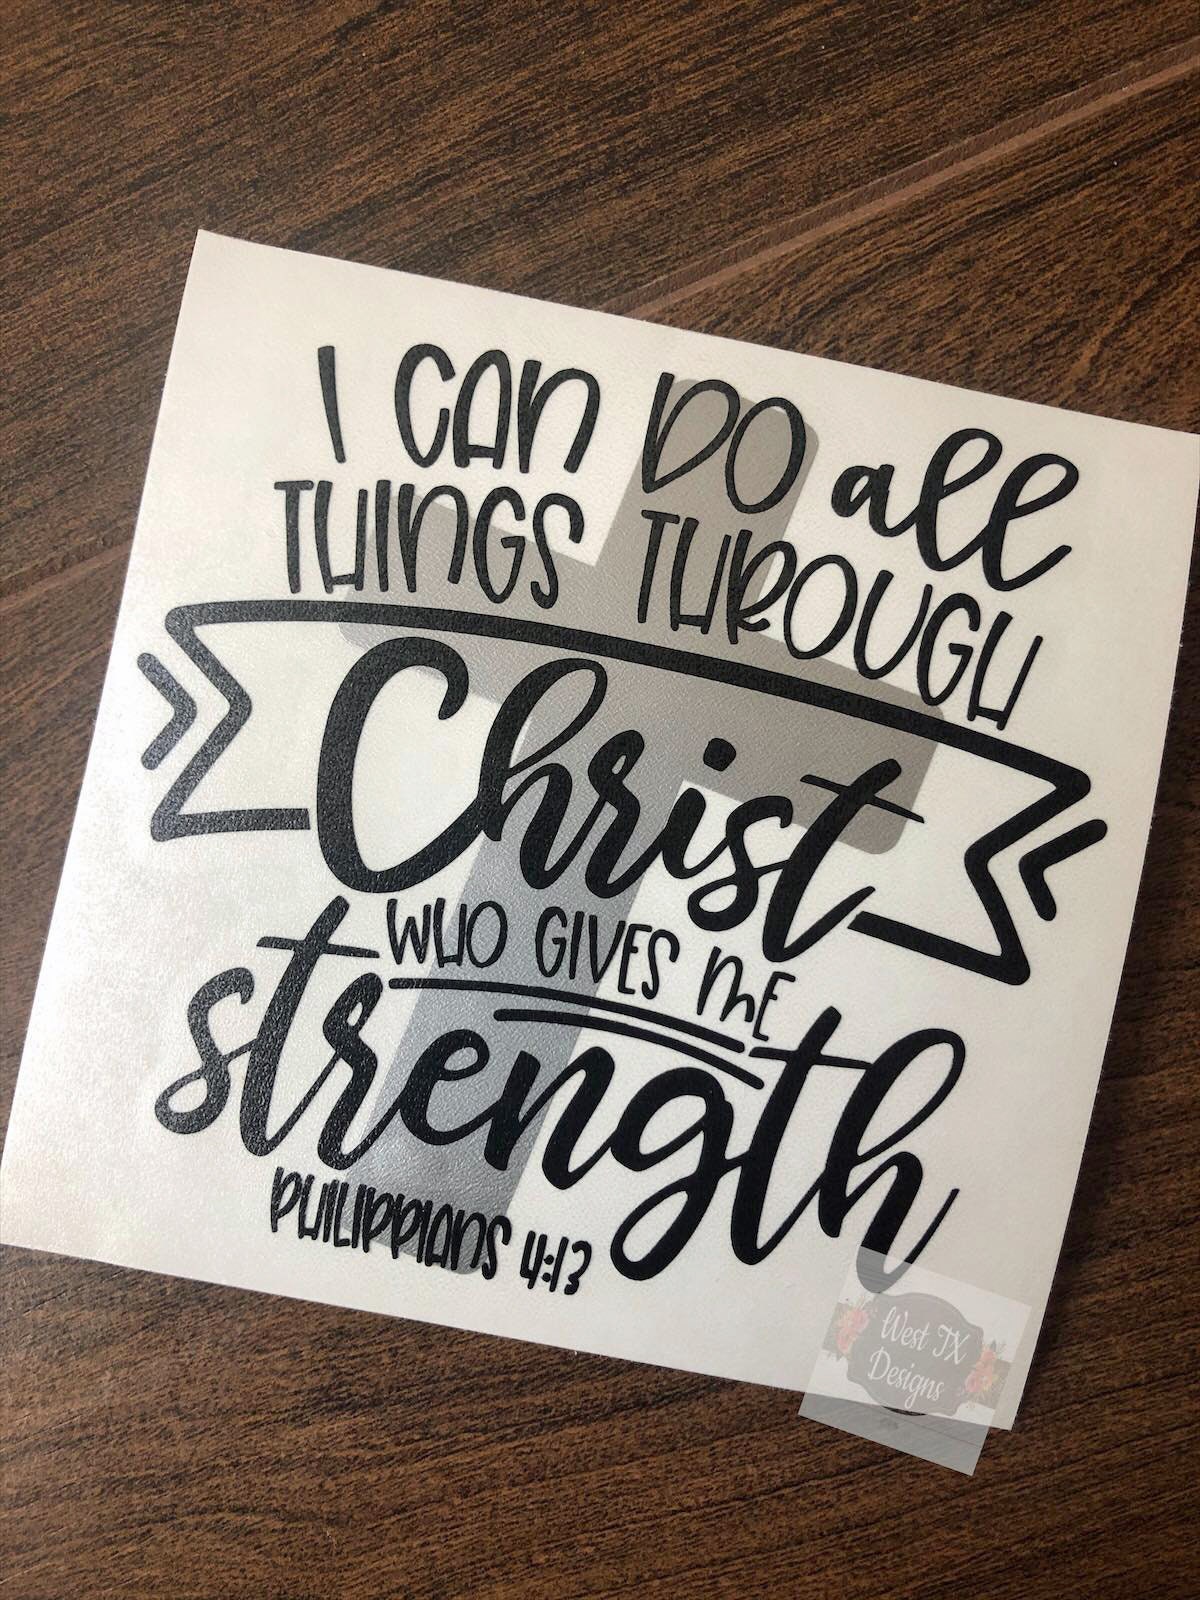 I CAN DO all
THINGS THROUGH
Christ
WHO GIVES ME
strength
PHILIPPIANS 4:13
West TX
Designs